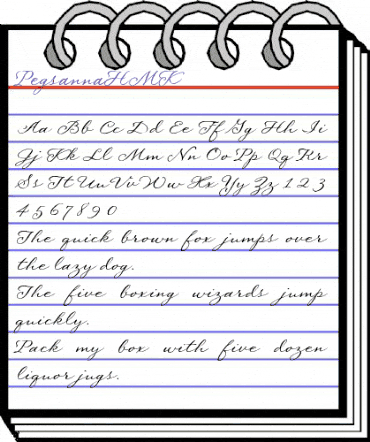 PegsannaHMK
Aa Bb Cc Dd Ee Ff Gg Hh Ii
Jj Kk Ll Mm Nn Oo Pp Qq Rr
Ss Tt Uu Vv Ww Xx Yy Zz 1 2 3
4 5 6 7 8 9 0
The quick brown fox jumps over
the lazy dog.
The five boxing wizards jump
quickly.
Pack my box with five dozen
liquor jugs.